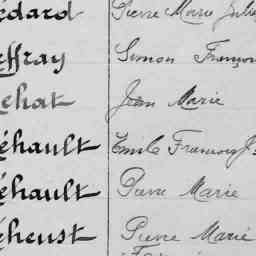 édard Pierre Marie Julie
effray Simon François
ehat Jean Marie
éhault Emile François J
éhault Pierre Marie
éheust Pierre Marie